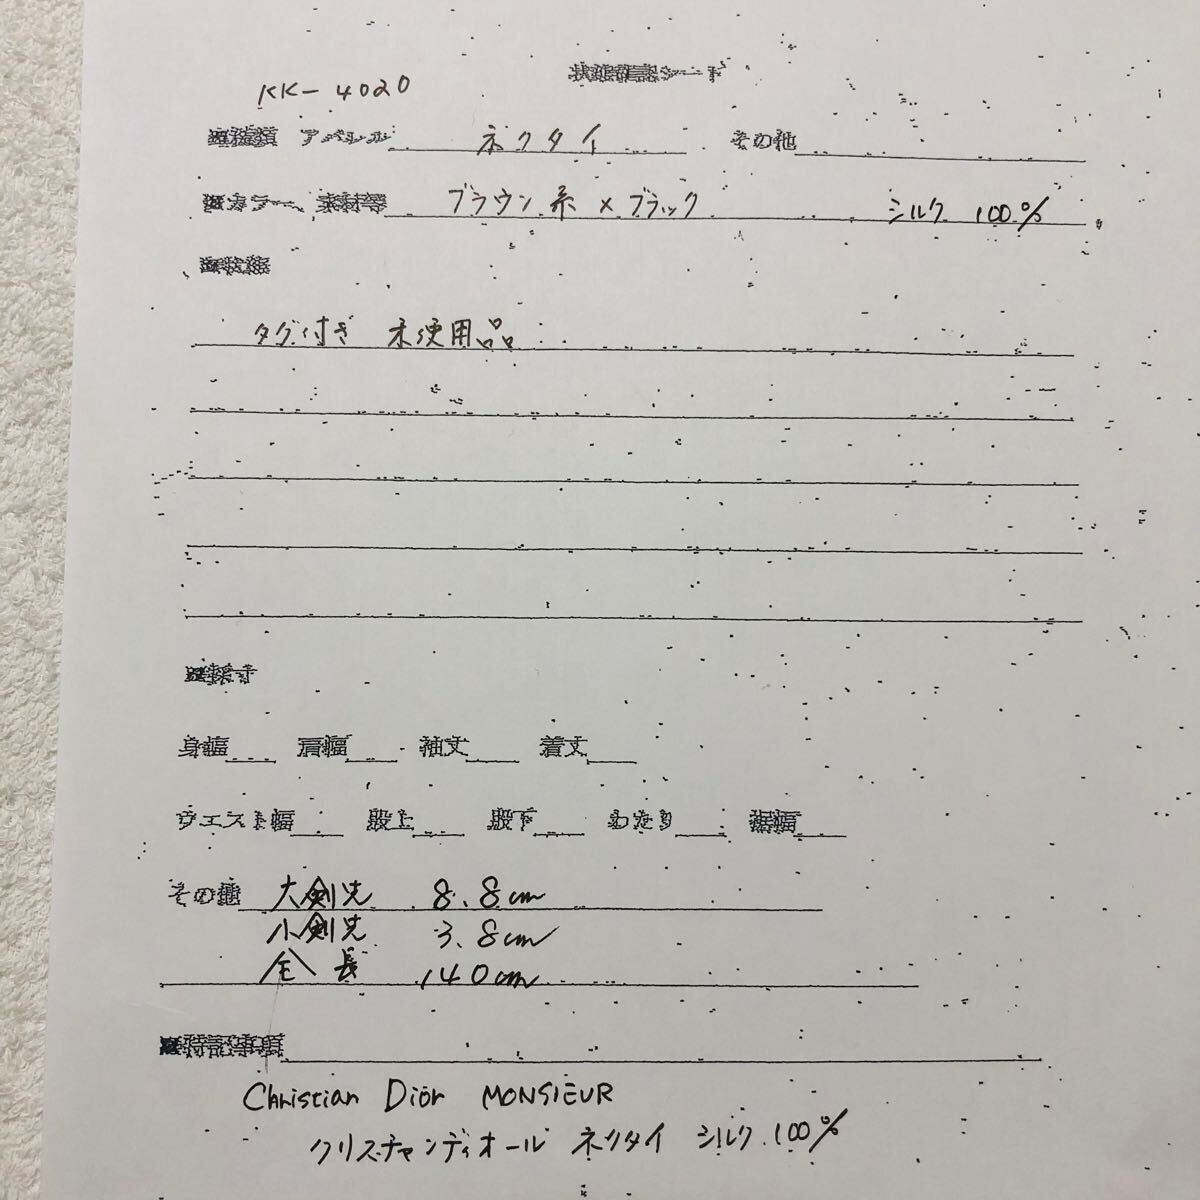 状態確認シート
KK-4020
■種類 アパレル ネクタイ その他
■カラー、素材等 ブラウン系×ブラック シルク 100%
■状態
タグ付き 未使用品
■採寸
身幅 肩幅 袖丈 着丈
ウエスト幅 股上 股下 わたり 裾幅
その他 大剣先 8.8cm
小剣先 3.8cm
全長 140cm
■特記事項
Christian Dior MONSIEUR
クリスチャンディオール ネクタイ シルク100%